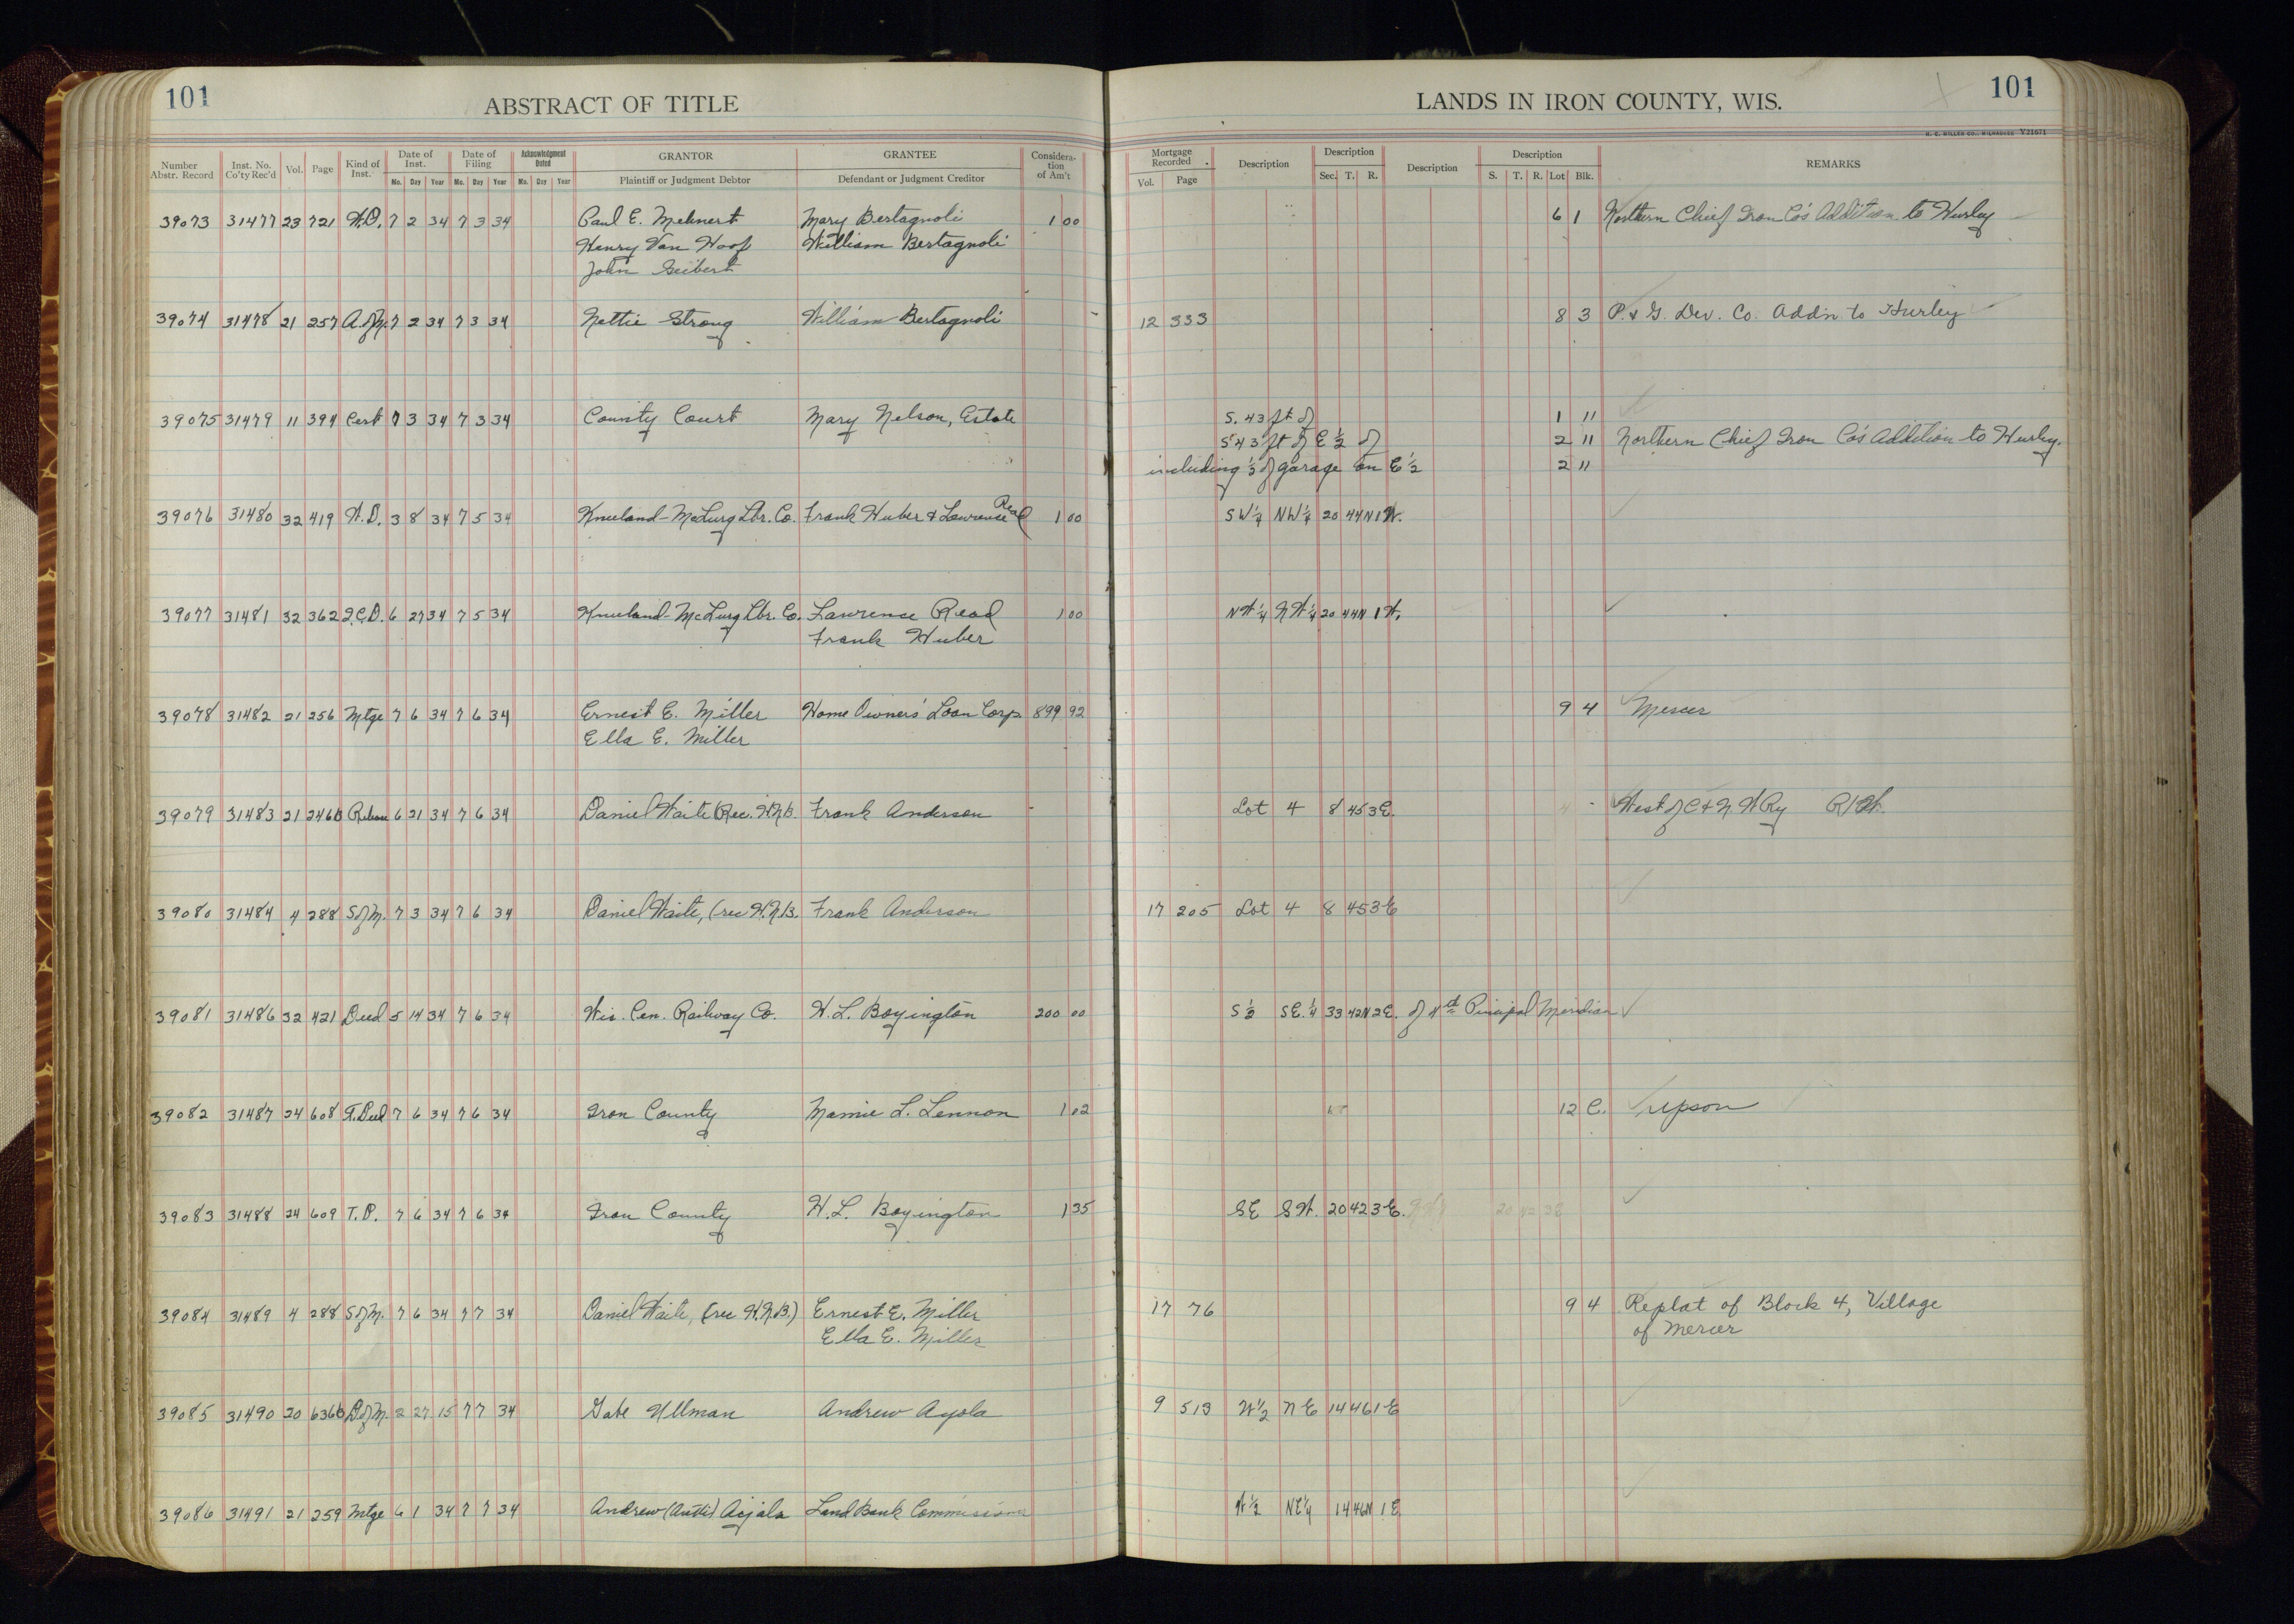 101
ABSTRACT OF TITLE
Number Abstr. Record Inst. No. Co'ty Rec'd Vol. Page Kind of Inst. Date of Inst. Mo. Day Year Date of Filing Mo. Day Year Acknowledgment Dated Mo. Day Year GRANTOR Plaintiff or Judgment Debtor GRANTEE Defendant or Judgment Creditor Considera-tion of Am't
39073 31477 23 721 W.D. 7 2 34 7 3 34 Paul E. Mehnert Mary Bertagnoli 1 00
Henry Van Hoof William Bertagnoli
John Seibert
39074 31478 21 257 A of M. 7 2 34 7 3 34 Nettie Strong William Bertagnoli
39075 31479 11 394 Cert 7 3 34 7 3 34 County Court Mary Nelson, Estate
39076 31480 32 419 W.D. 3 8 34 7 5 34 Kneeland-McLurg Lbr. Co. Frank Huber & Lawrence Read 1 00
39077 31481 32 362 Q.C.D. 6 27 34 7 5 34 Kneeland-McLurg Lbr. Co. Lawrence Read 1 00
Frank Huber
39078 31482 21 256 Mtge 7 6 34 7 6 34 Ernest E. Miller Home Owners' Loan Corp 899 92
Ella E. Miller
39079 31483 21 246b Release 6 21 34 7 6 34 Daniel Waite (Rec. H.N.B. Frank Anderson
39080 31484 4 288 S of M. 7 3 34 7 6 34 Daniel Waite, (rec H.N.B. Frank Anderson
39081 31486 32 421 Deed 5 14 34 7 6 34 Wis. Cen. Railway Co. H.L. Boyington 200 00
39082 31487 24 608 T.Deed 7 6 34 7 6 34 Iron County Mamie L. Lennon 1 02
39083 31488 24 609 T.D. 7 6 34 7 6 34 Iron County H.L. Boyington 1 35
39084 31489 4 288 S of M. 7 6 34 7 7 34 Daniel Waite, (rec H.N.B.) Ernest E. Miller
Ella E. Miller
39085 31490 20 636b D of M. 2 27 15 7 7 34 Gabe Ullman Andrew Ayola
39086 31491 21 259 Mtge 6 1 34 7 7 34 Andrew (Antti) Aijala Land Bank Commissioner
101
LANDS IN IRON COUNTY, WIS.
H. C. MILLER CO., MILWAUKEE Y21671
Mortgage Recorded Vol. Page Description Description Sec. T. R. Description Description S. T. R. Lot Blk. REMARKS
6 1 Northern Chief Iron Co's Addition to Hurley
12 333 8 3 P. & G. Dev. Co. Add'n to Hurley
S. 43 ft of 1 11
S 43 ft of E 1/2 of 2 11 Northern Chief Iron Co's Addition to Hurley.
including 1/2 of garage on E 1/2 2 11
SW 1/4 NW 1/4 20 44N 1W.
NW 1/4 NW 1/4 20 44N 1W.
9 4 Mercer
Lot 4 8 45 3E. West of C & N.W Ry R/W.
17 205 Lot 4 8 45 3E
S 1/2 SE. 1/4 33 42N 2E. of 4th Principal Meridian
12 C. Upson
SE SW. 20 42 3E. 20 42 3E
17 76 9 4 Replat of Block 4, Village
of Mercer
9 513 W 1/2 NE 14 46 1E
W 1/2 NE 1/4 14 46N 1E